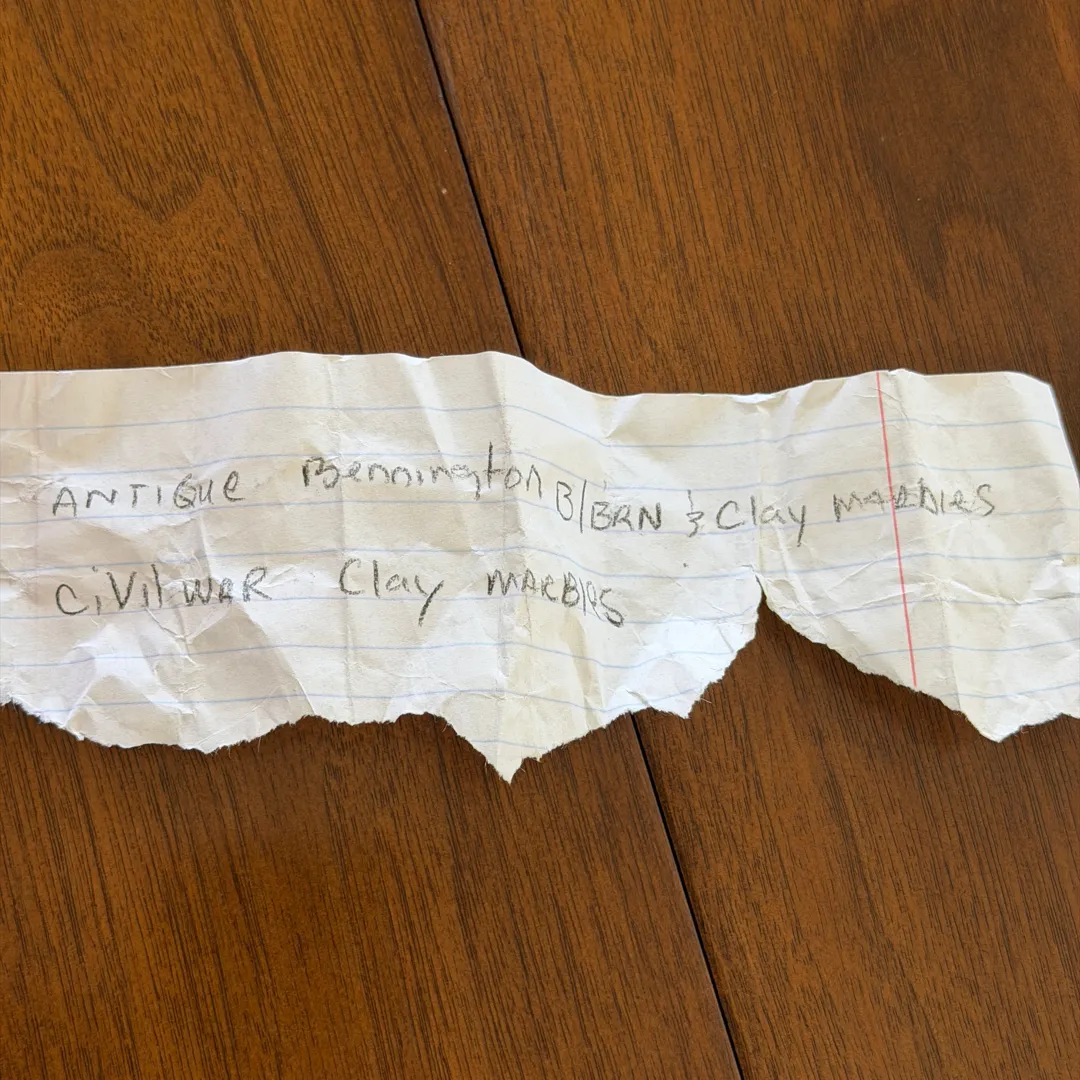 ANTIQUE Bennington B/BRN & Clay MARbles
CiVil WAR Clay MARBles